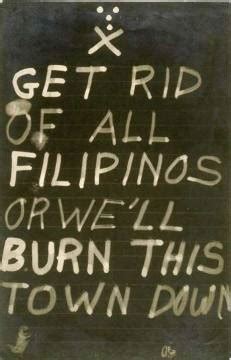 GET RID
OF ALL
FILIPINOS
OR WE'LL
BURN THIS
TOWN DOWN